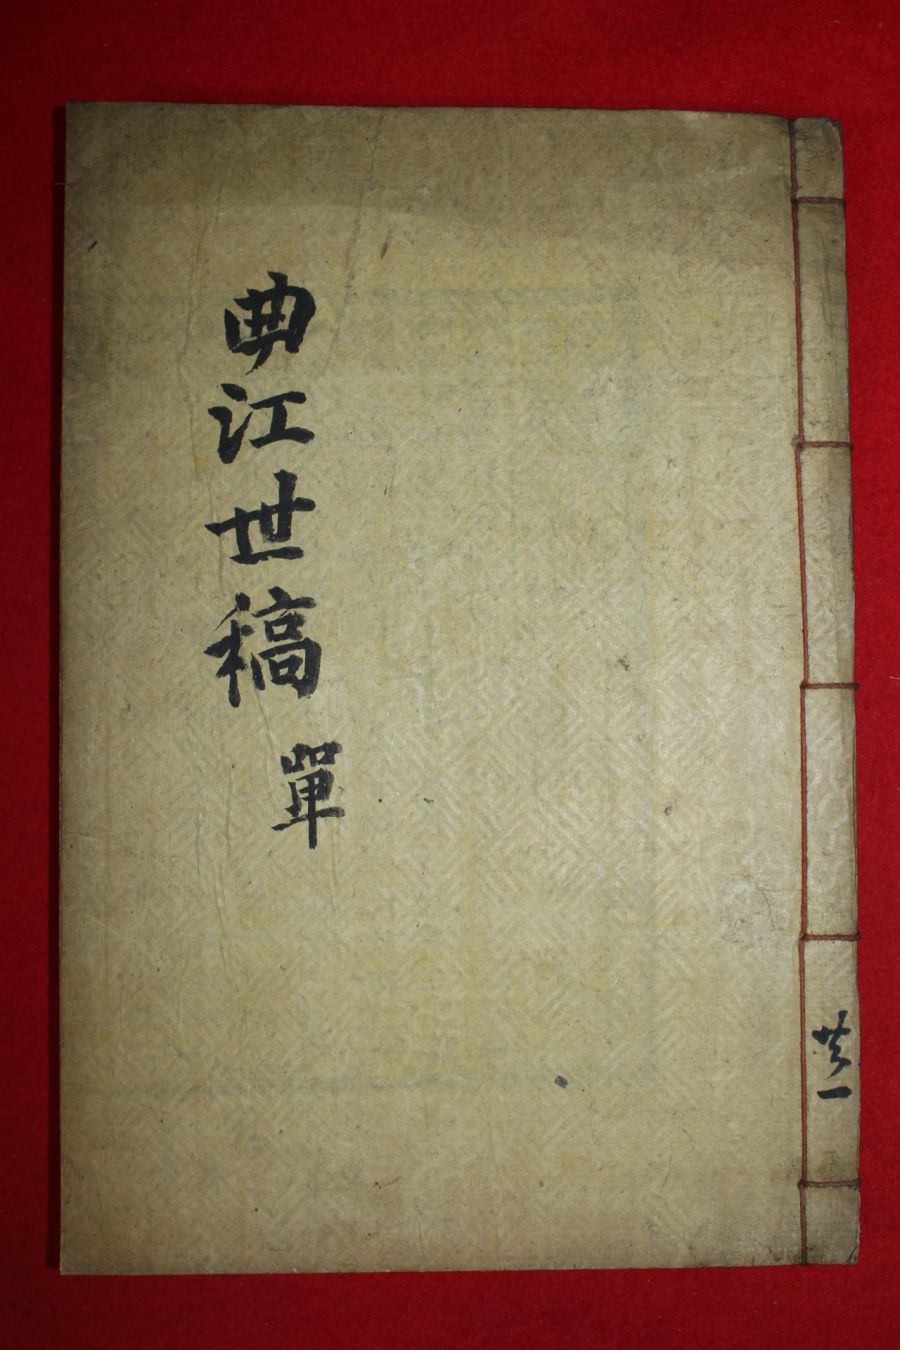 曲江世稿 單
共一